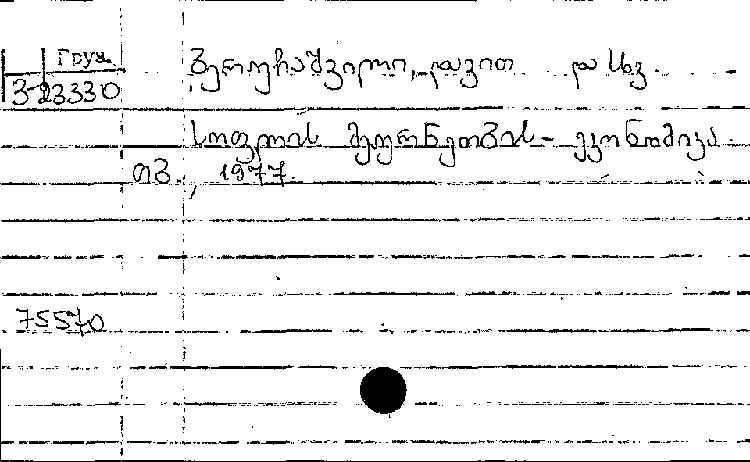 Груз.
3-23330
გერიერაშვილი, დავით და სხვ.
სოფლის მეურნეობის ეკონომიკა.
თბ., 1977.
75570